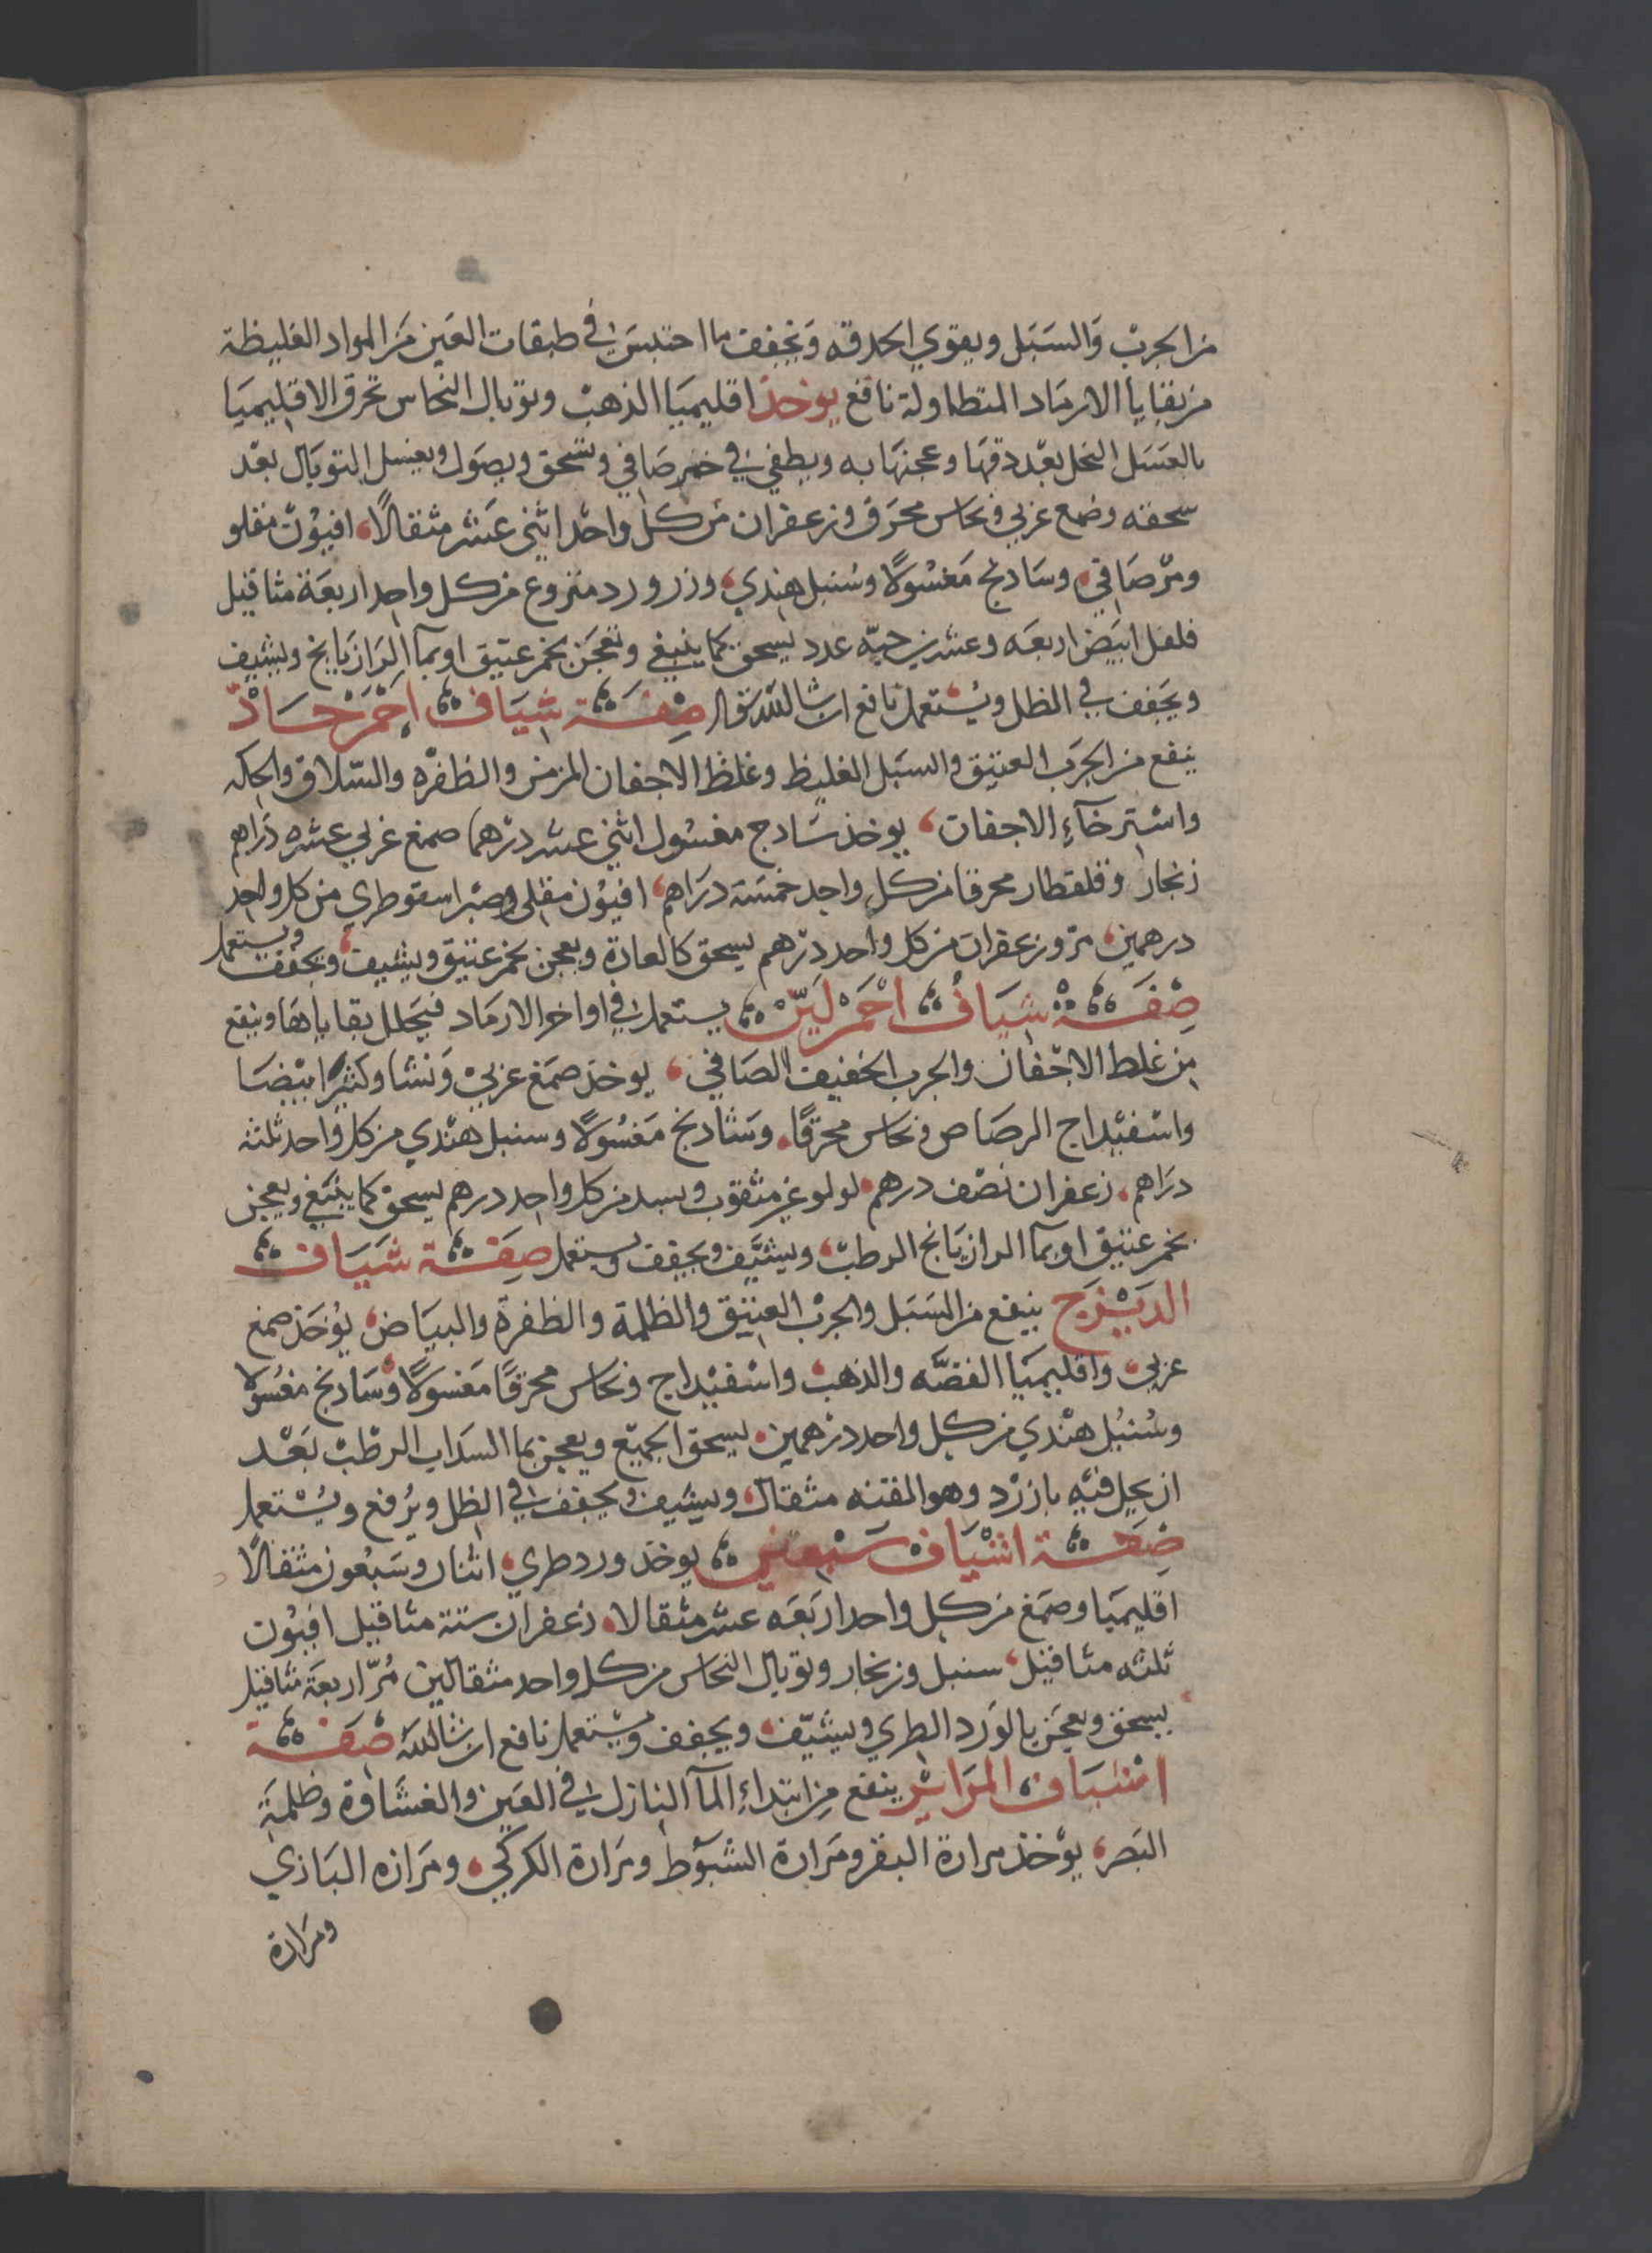 من الجرب وَالسَبَل ويقوي الحدقه وَيجفف ما احتبسَ في طبقات العَين مَن المواد الغليظة
من بقايا الارمَاد المتطاولة نافع يوخذ اقليميَا الذهبْ وتوبال النحاس تحرق الاقليميَا
بالعَسَل النحل بعْد دقهَا وعجنهَا به ويطفي في خمر صَافي وتسحق ويصَول ويغسل التوبَال بعْد
سحقه وصمغ عربي ونحاس محرَق وزعفران من كل واحْد اثني عَشر مثقالًا، افيوُن مقلو
ومرّ صَافي، وسَادنج مَغسُولًا وسُنبل هندي، وزر ورد منزوع من كل واحد اربعَة مثاقيل
فلفل ابيَض اربعَه وعشرين حبّه عدد يسحق كما ينبغي وتعجَن بخمر عتيق او بمآ الرَازيَانج ويشيف
ويَجفف في الظل ويُستعمل نافع ان شا الله تعَالى صِفَة شيَاف احْمَرْ حَادّ
ينفع من الجرَب العتيق والسبَل الغليظ وغلظ الاجفان المزمن والظفرْه والسّلاق والحكه
واسْترخآءِ الاجفان، يوخذ سَادج مغسُول اثني عشر درْهما صمغ عربي عشره دَراهم
زنجار وقلقطار محرقا من كل واحِد خمسَة درَاهم، افيوُن مقلى وصبْر اسقوطري من كل واحد
درهمين، مرّ وزعفران من كل واحد درْهم يسحق كالعادة ويعجن بخمر عتيق ويشيف، ويجفف ويستعمل
صِفَة شيَافْ احْمَرْ لَيّنْ يستعمل في اواخر الارمَاد فيحَلل بقايَاهَا وينفع
مِن غلط الاجْفان والجرب الخفيف الصَافي، يوخذ صَمغ عربيْ وَنشا وكثيرا بيْضَا
واسْفيْداج الرصَاص ونحاس محرقًا، وشادنج مَغسُولًا وسنبل هنْدي من كل واحد ثلثه
درَاهم، زعفران نصْف درهم، لولو غير مثقوب وبسد من كل واحد درهم يسحقْ كما ينْبَغي ويعجن
بخمر عتيق او بمآ الرازيَانج الرطبْ، ويشيَّف ويجفف ويستعمل صِفَة شيَاف
الديْزج ينفع من السَبَل والجربْ العتيق والظلمة والظفرة والبيَاضْ، يُوخَذ صمغ
عربي، واقليميَا الفضّه والذهبْ واسْفيْداج ونحاس محرقًا مَغسولًا، وسَادنج مغسُولا
وسُنبُل هنْدي من كل واحد درْهمين، يسحق الجميْع ويعجن بما السدَاب الرطبْ بَعْد
ان يحل فيْه بازرْد وهو المقتنه مثقال، ويشيف ويجفف في الظل ويُرفع ويُسْتعمل
صِفَة اشْيَاف سَبعيني يوخذ ورد طري، اثنان وسَبْعون مثقالًا
اقليميَا وصَمْغ من كل واحد اربَعَه عشر مثقالا، زعفران ستة مثاقيل افيوُن
ثلثه مثاقيل، سنبل وزنجار وتوبال النحاس من كل واحد مثقالين مُرّ اربعَة مثاقيل
يسحق ويعجَن بالوَرد الطري ويشيّف، ويجفف ويستعمل نافع ان شا الله صَفَة
اشيَاف المرَايرِ ينفع مِن ابتداءِ المآ النازل في العَين والغشَاوة وظلمَة
البَصر، يوْخذ مرارة البقر ومَرارة الشبوّط ومَرَارة الكركي، ومَرَاره البَازي
ومرَارة